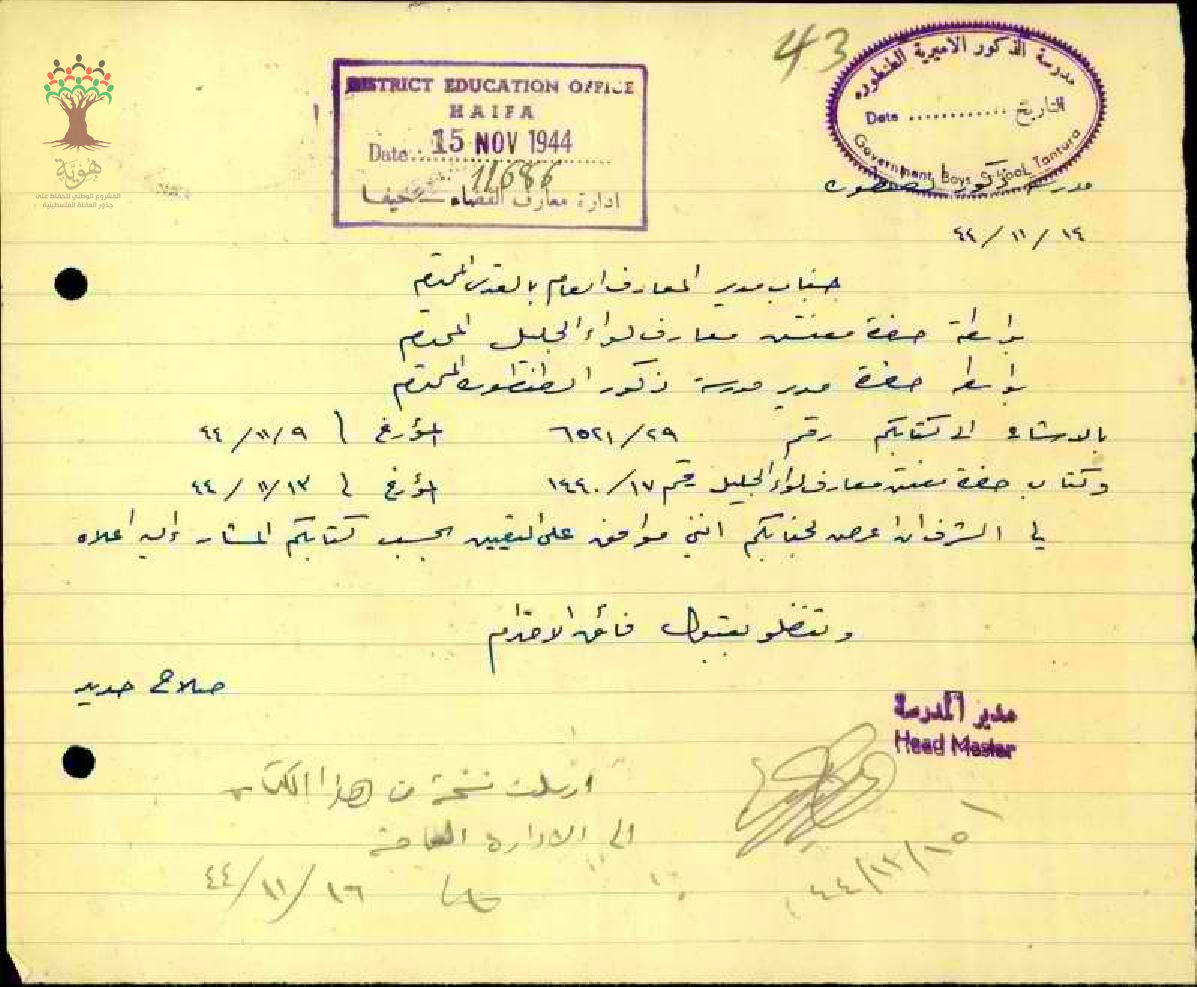 43
مدرسة الذكور الاميرية الطنطوره
Date ............ التاريخ
Government Boys School, Tantura
DISTRICT EDUCATION OFFICE
HAIFA
Date 15 NOV 1944
11686
ادارة معارف القضاء – حيفا
هَوِيَّة
المشروع الوطني للحفاظ على
جذور العائلة الفلسطينية
مدرسة ذكور الطنطوره
١٤ / ١١ / ٤٤
جناب مدير المعارف العام بالقدس المحترم
بواسطة حضرة مفتش معارف لواء الجليل المحترم
بواسطة حضرة مدير مدرسة ذكور الطنطوره المحترم
بالاشارة الى كتابكم رقم ٦٥٢١/٢٩ المؤرخ في ٩/١١/٤٤
وكتاب حضرة مفتش معارف لواء الجليل رقم ١٤٤٠/١٧ المؤرخ في ١٣/١١/٤٤
لي الشرف ان اعرض لجنابكم انني موافق على التعيين بحسب كتابكم المشار اليه اعلاه
وتفضلو بقبول فائق الاحترام
صلاح حديد
مدير المدرسة
Head Master
ارسلت نسخة من هذا الكتاب
الى الادارة العامة
١٦/١١/٤٤